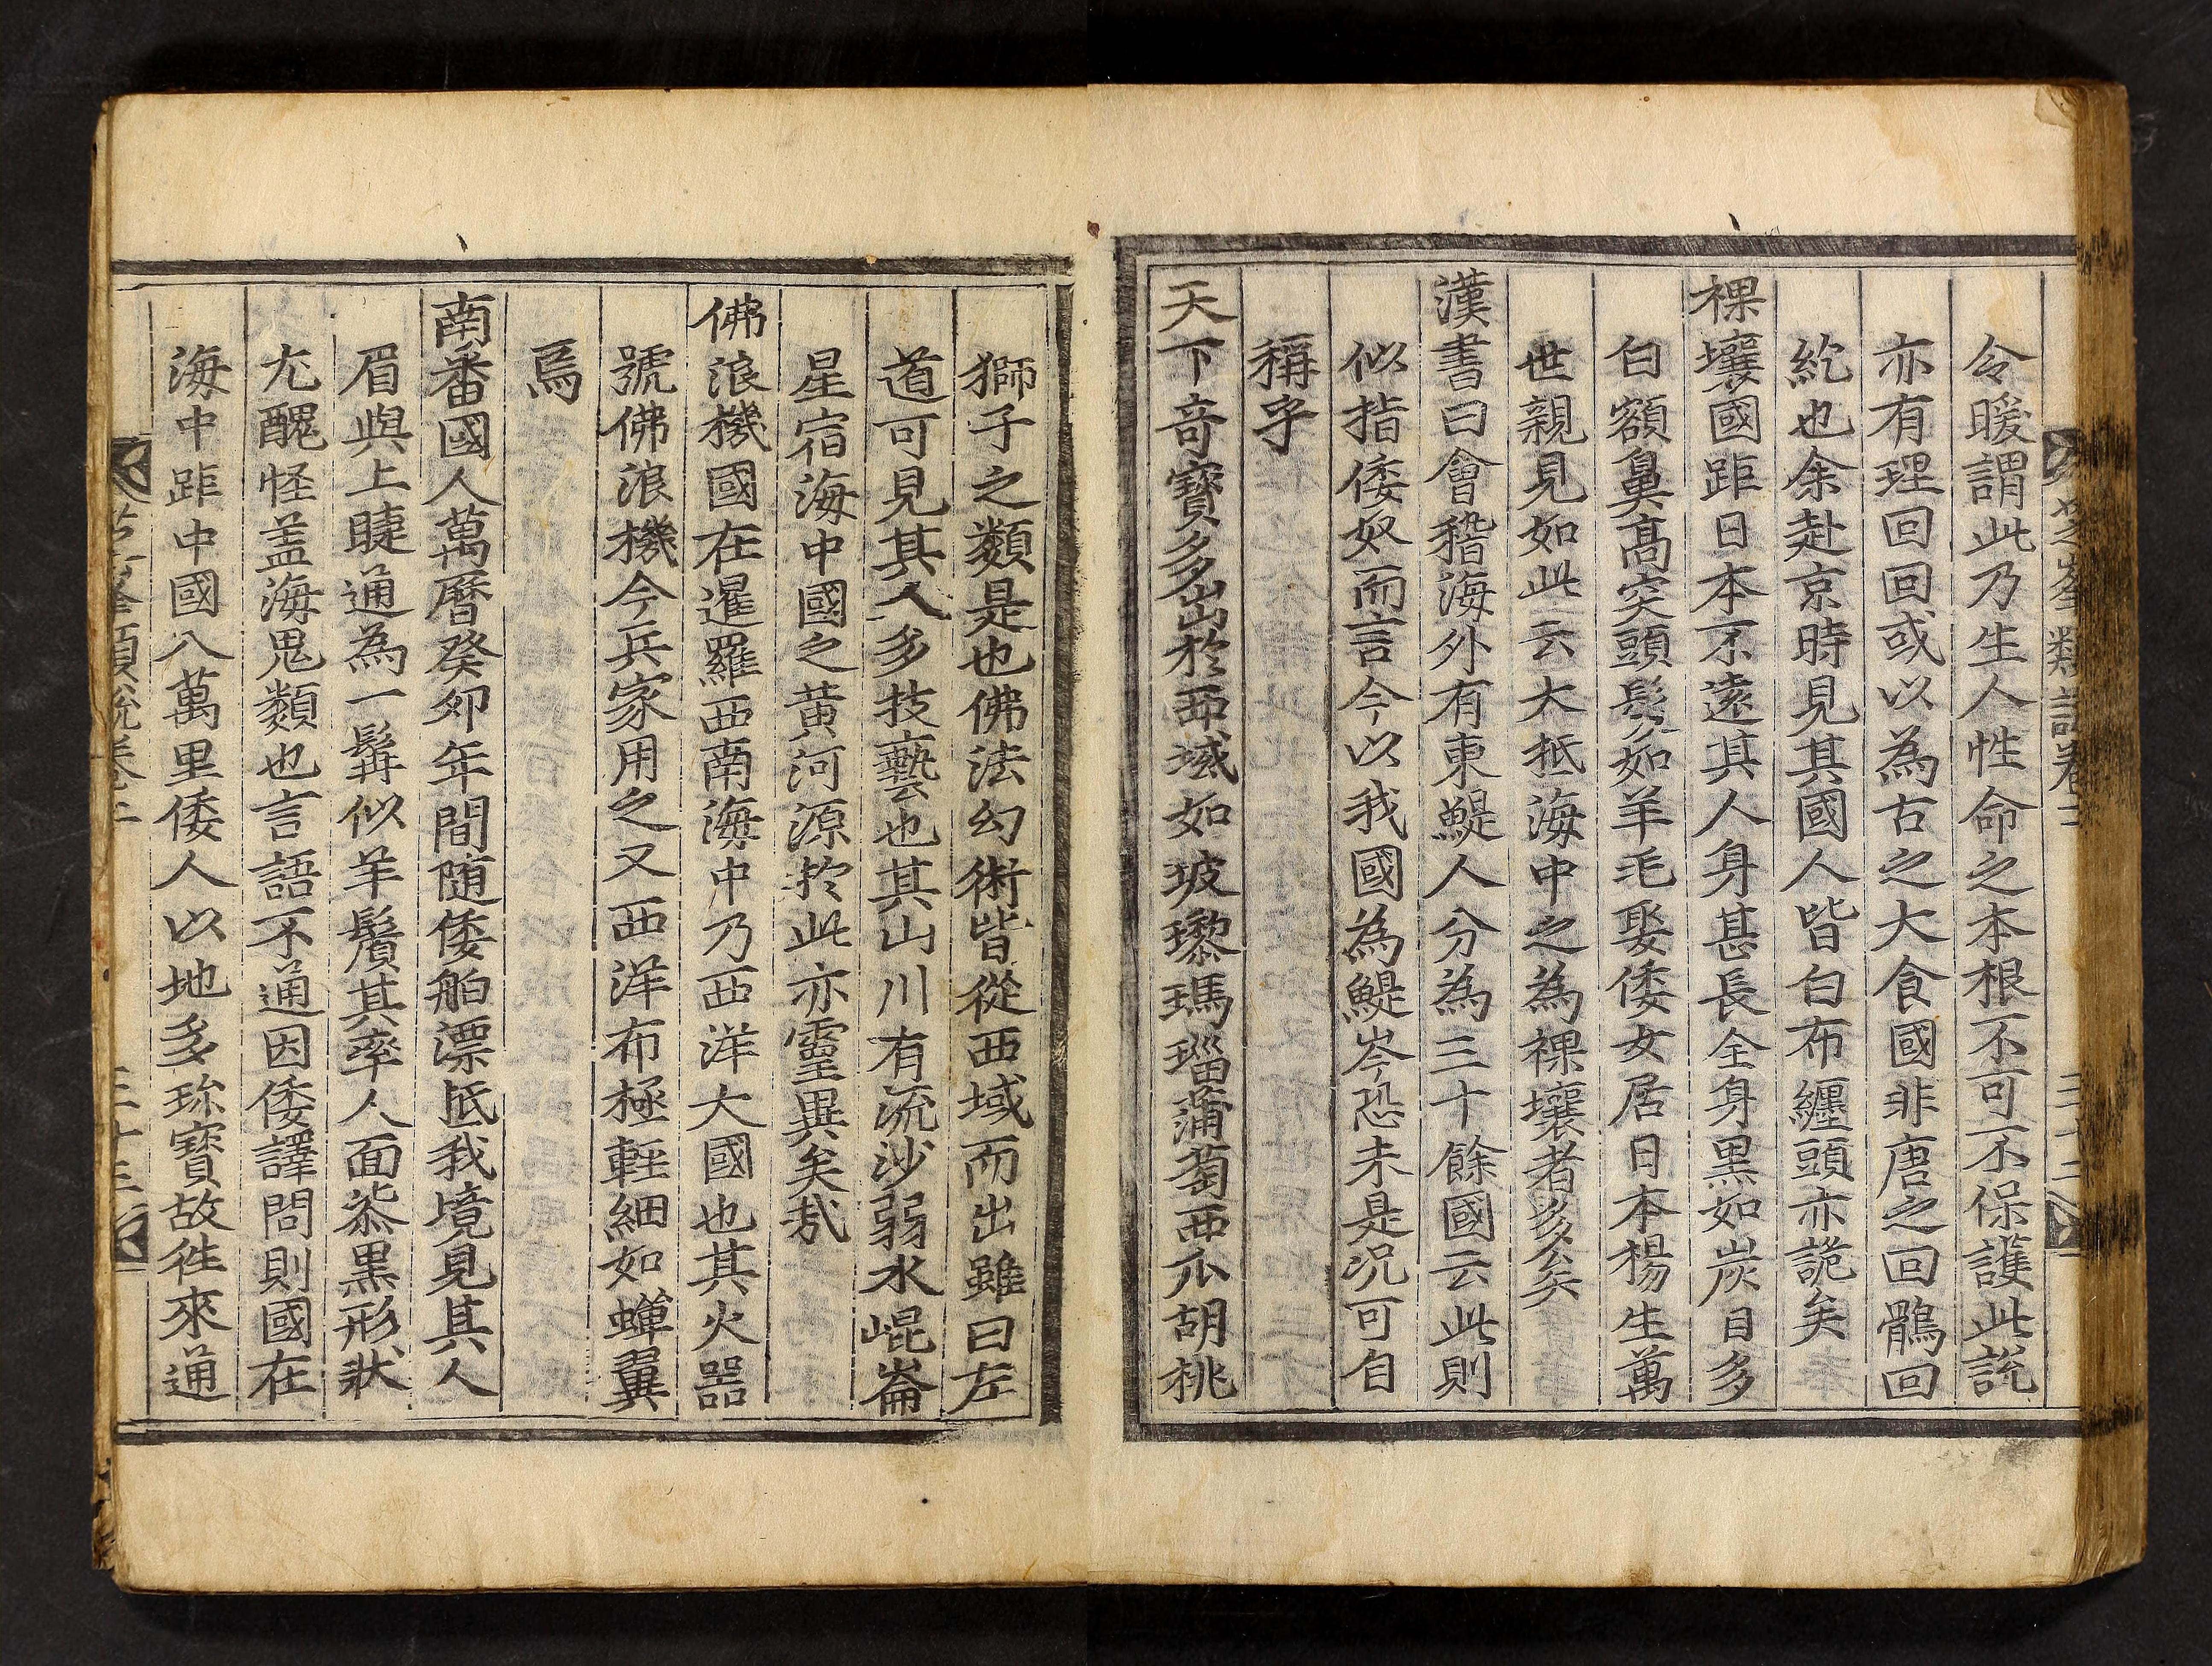 芝峯類說卷二
三十二
令暖謂此乃生人性命之本根不可不保護此說
亦有理回回或以為古之大食國非唐之回鶻回
紇也余赴京時見其國人皆白布纏頭亦詭矣
裸壤國距日本不遠其人身甚長全身黑如炭目多
白額鼻高突頭髮如羊毛娶倭女居日本楊生萬
世親見如此云大抵海中之為裸壤者多矣
漢書曰會稽海外有東鯷人分為三十餘國云此則
似指倭奴而言今以我國為鯷岑恐未是況可自
稱乎
天下奇寶多出於西域如玻瓈瑪瑙蒲萄西瓜胡桃
獅子之類是也佛法幻術皆從西域而出雖曰左
道可見其人多技藝也其山川有流沙弱水崐崙
星宿海中國之黃河源於此亦靈異矣哉
佛浪機國在暹羅西南海中乃西洋大國也其火器
號佛浪機今兵家用之又西洋布極輕細如蟬翼
焉
南番國人萬曆癸卯年間随倭舶漂抵我境見其人
眉與上睫通為一髯似羊鬚其率人面㓒黒形狀
尤醜怪盖海鬼類也言語不通因倭譯問則國在
海中距中國八萬里倭人以地多珎寶故徃來通
芝峯類說卷二
三十三